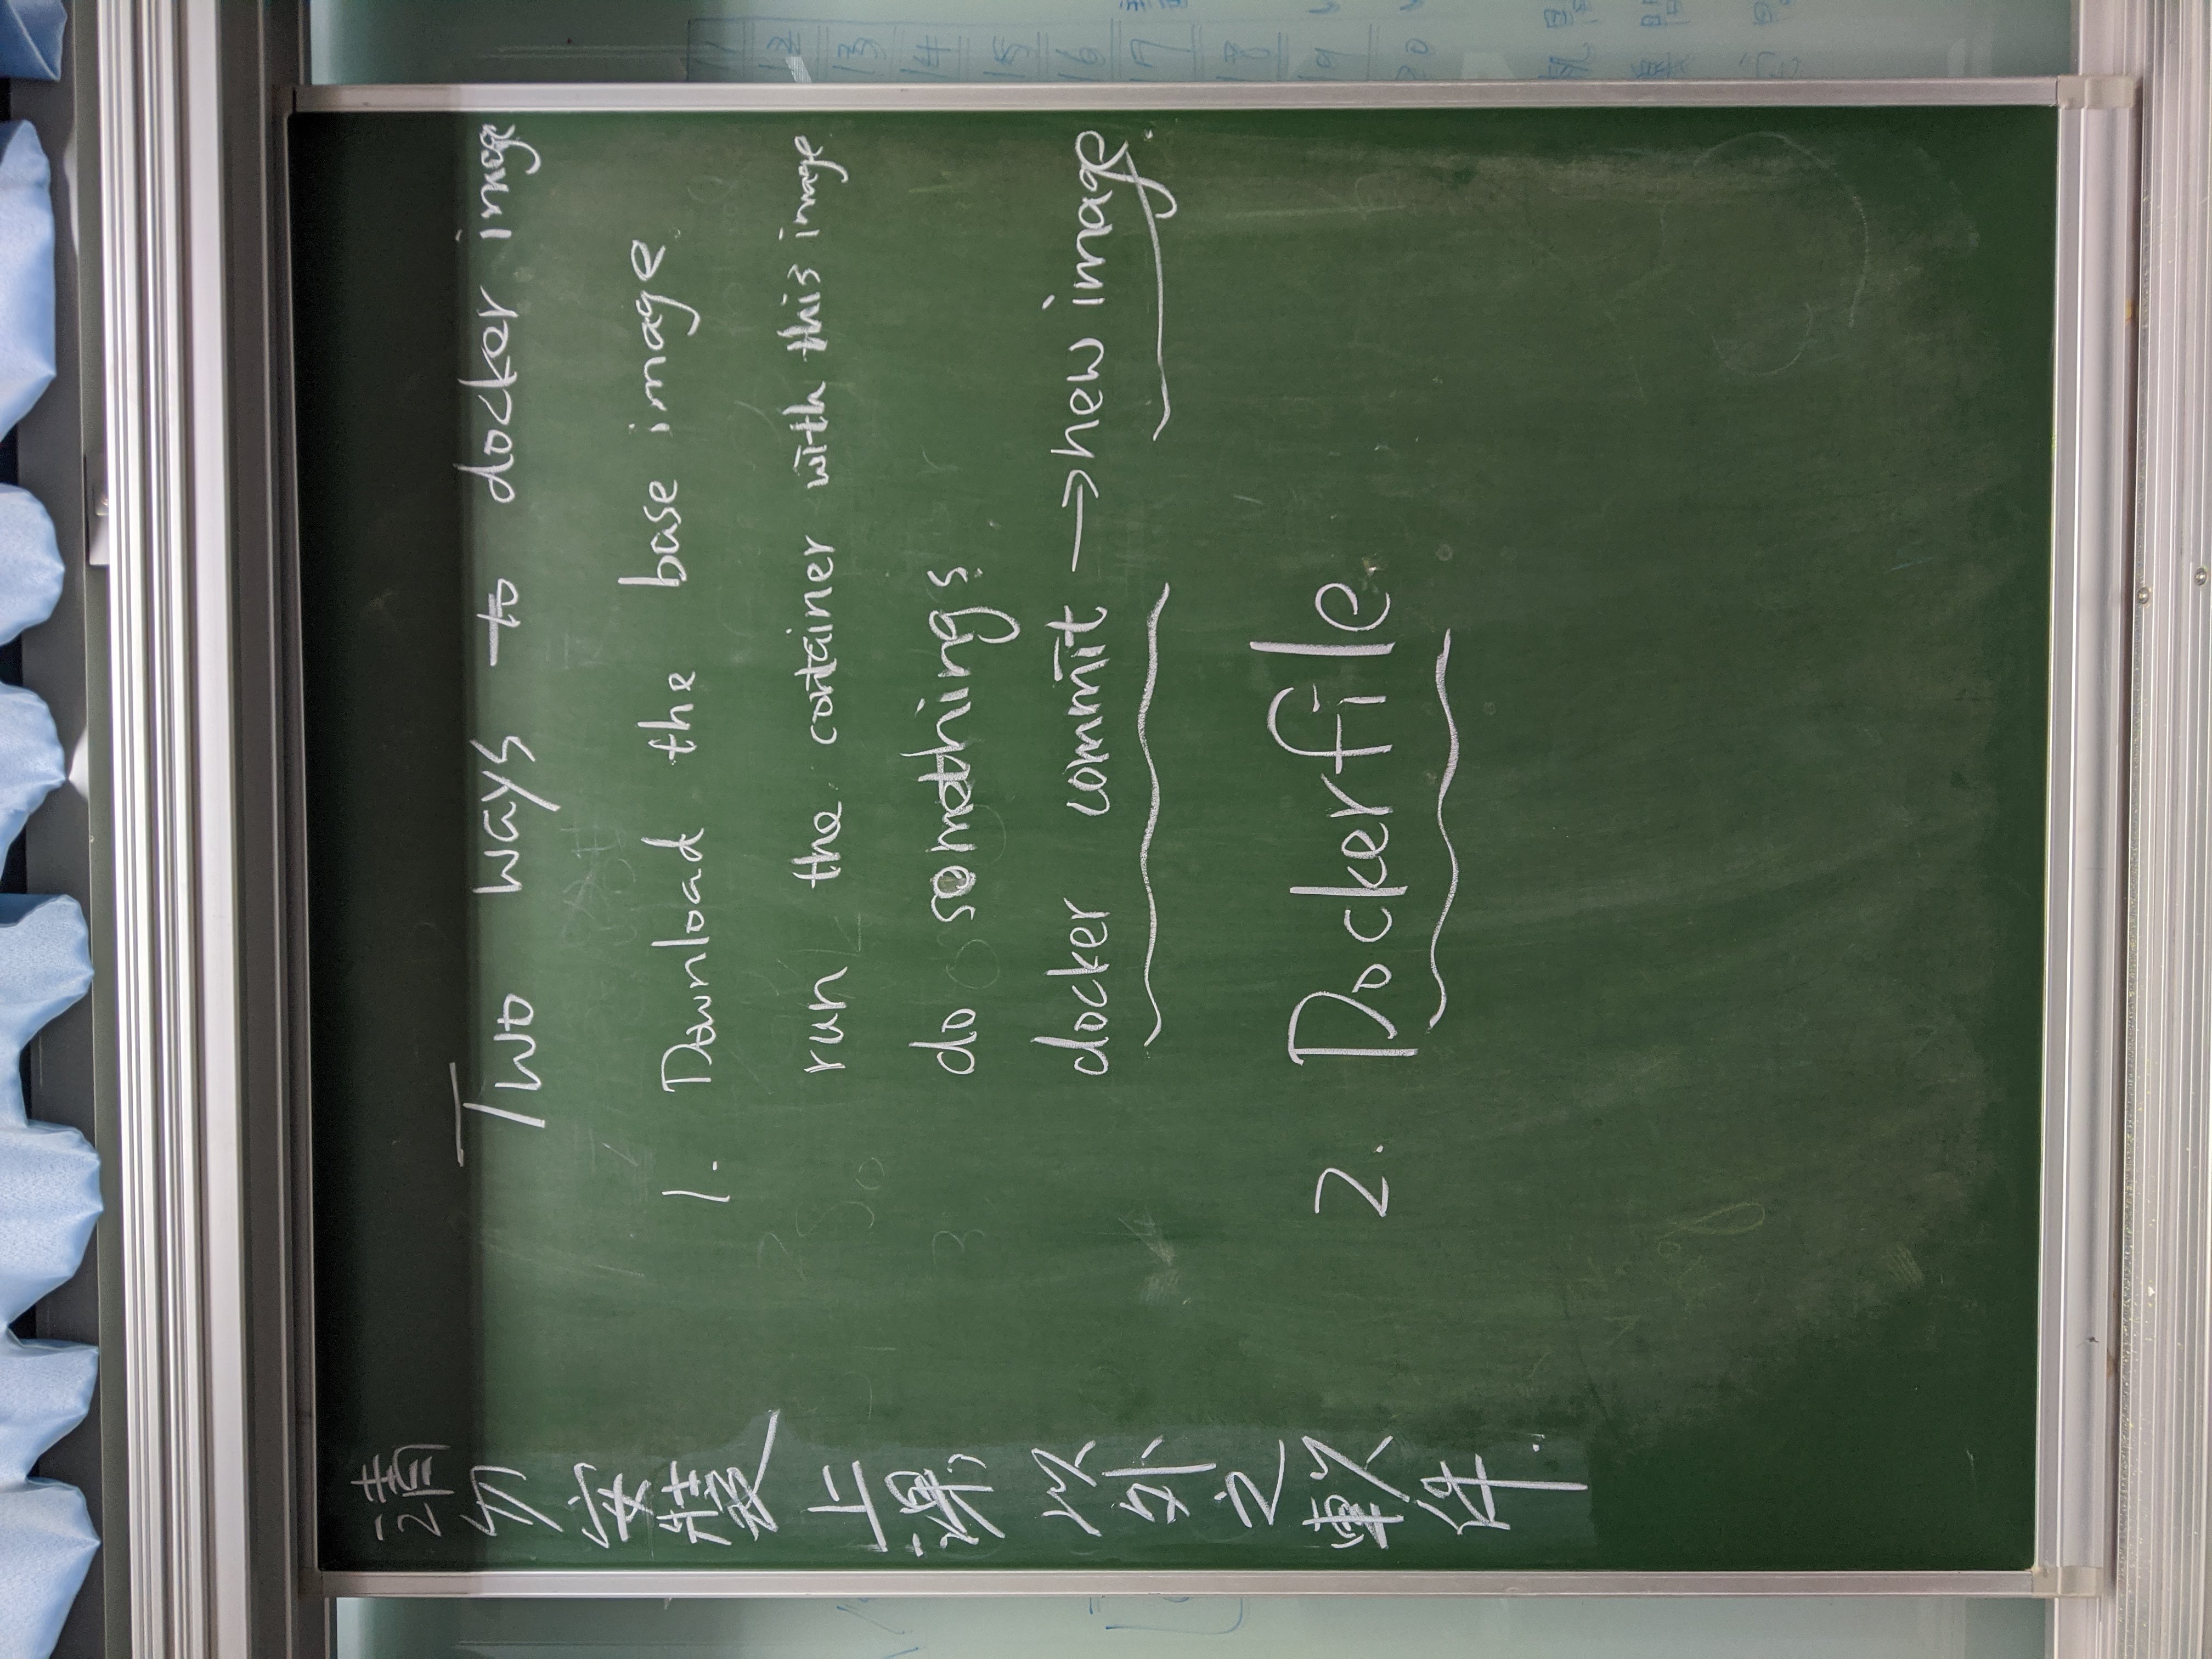 請勿安裝上課以外之軟件.
Two ways to docker image
1. Download the base image
run the container with this image
do somethings
docker commit → new image
2. Dockerfile
12
13
14
15
16
17
18
19
20